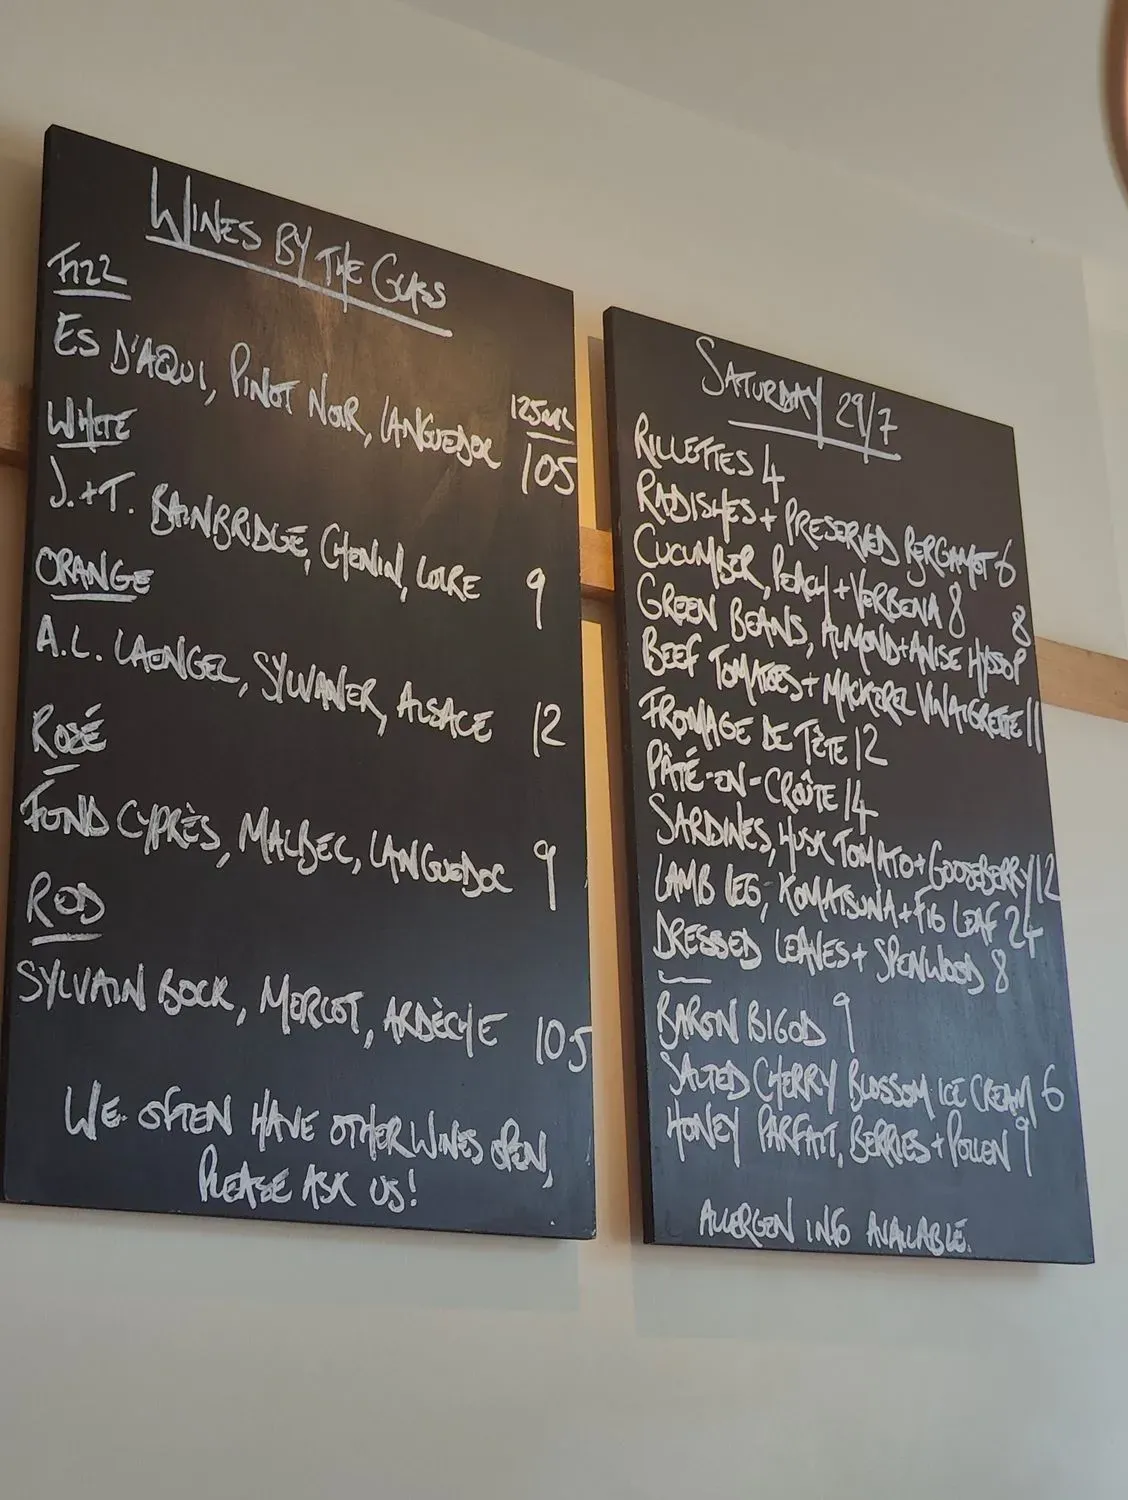 WINES BY THE GLASS
FIZZ
125ML
ES D'AQUI, PINOT NOIR, LANGUEDOC 105
WHITE
J.+T. BAINBRIDGE, CHENIN, LOIRE 9
ORANGE
A.L. LAENGEL, SYLVANER, ALSACE 12
ROSÉ
FOND CYPRÈS, MALBEC, LANGUEDOC 9
ROD
SYLVAIN BOCK, MERLOT, ARDÈCHE 105
WE OFTEN HAVE OTHER WINES OPEN,
PLEASE ASK US!
SATURDAY 29/7
RILLETTES 4
RADISHES + PRESERVED BERGAMOT 6
CUCUMBER, PEACH + VERBENA 8
GREEN BEANS, ALMOND + ANISE HYSSOP 8
BEEF TOMATOES + MACKEREL VINAIGRETTE 11
FROMAGE DE TÊTE 12
PÂTÉ-EN-CROÛTE 14
SARDINES, HUSK TOMATO + GOOSEBERRY 12
LAMB LEG, KOMATSUNA + FIG LEAF 24
DRESSED LEAVES + SPENWOOD 8
BARON BIGOD 9
SALTED CHERRY BLOSSOM ICE CREAM 6
HONEY PARFAIT, BERRIES + POLLEN 9
ALLERGEN INFO AVAILABLE.